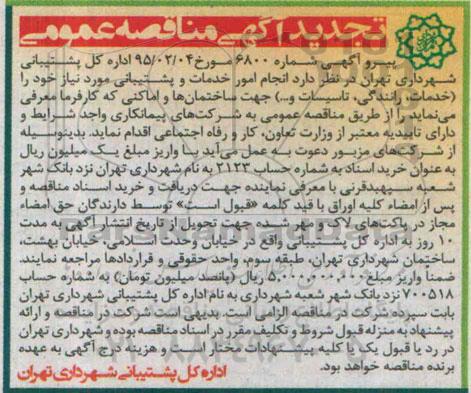 تجدید آگهی مناقصه عمومی
پیرو آگهی شماره ۶۸۰۰ مورخ ۹۵/۰۲/۰۴ اداره کل پشتیبانی
شهرداری تهران در نظر دارد انجام امور خدمات و پشتیبانی مورد نیاز خود را
(خدمات، رانندگی، تاسیسات و...) جهت ساختمان‌ها و اماکنی که کارفرما معرفی
می‌نماید را از طریق مناقصه عمومی به شرکت‌های پیمانکاری واجد شرایط و
دارای تاییدیه معتبر از وزارت تعاون، کار و رفاه اجتماعی اقدام نماید. بدینوسیله
از شرکت‌های مزبور دعوت به عمل می‌آید با واریز مبلغ یک میلیون ریال
به عنوان خرید اسناد به شماره حساب ۲۱۲۳ به نام شهرداری تهران نزد بانک شهر
شعبه سپهبدقرنی با معرفی نماینده جهت دریافت و خرید اسناد مناقصه و
پس از امضاء کلیه اوراق با قید کلمه «قبول است» توسط دارندگان حق امضاء
مجاز در پاکت‌های لاک و مهر شده، جهت تحویل از تاریخ انتشار آگهی به مدت
۱۰ روز به اداره کل پشتیبانی واقع در خیابان وحدت اسلامی، خیابان بهشت،
ساختمان شهرداری تهران، طبقه سوم، واحد حقوقی و قراردادها مراجعه نمایند.
ضمناً واریز مبلغ ۵.۰۰۰.۰۰۰.۰۰۰ ریال (پانصد میلیون تومان) به شماره حساب
۷۰۰۵۱۸ نزد بانک شهر شعبه شهرداری به نام اداره کل پشتیبانی شهرداری تهران
بابت سپرده شرکت در مناقصه الزامی است. بدیهی است شرکت در مناقصه و ارائه
پیشنهاد به منزله قبول شروط و تکلیف مقرر در اسناد مناقصه بوده و شهرداری تهران
در رد یا قبول یک یا کلیه پیشنهادات مختار است و هزینه درج آگهی به عهده
برنده مناقصه خواهد بود.
اداره کل پشتیبانی شهرداری تهران